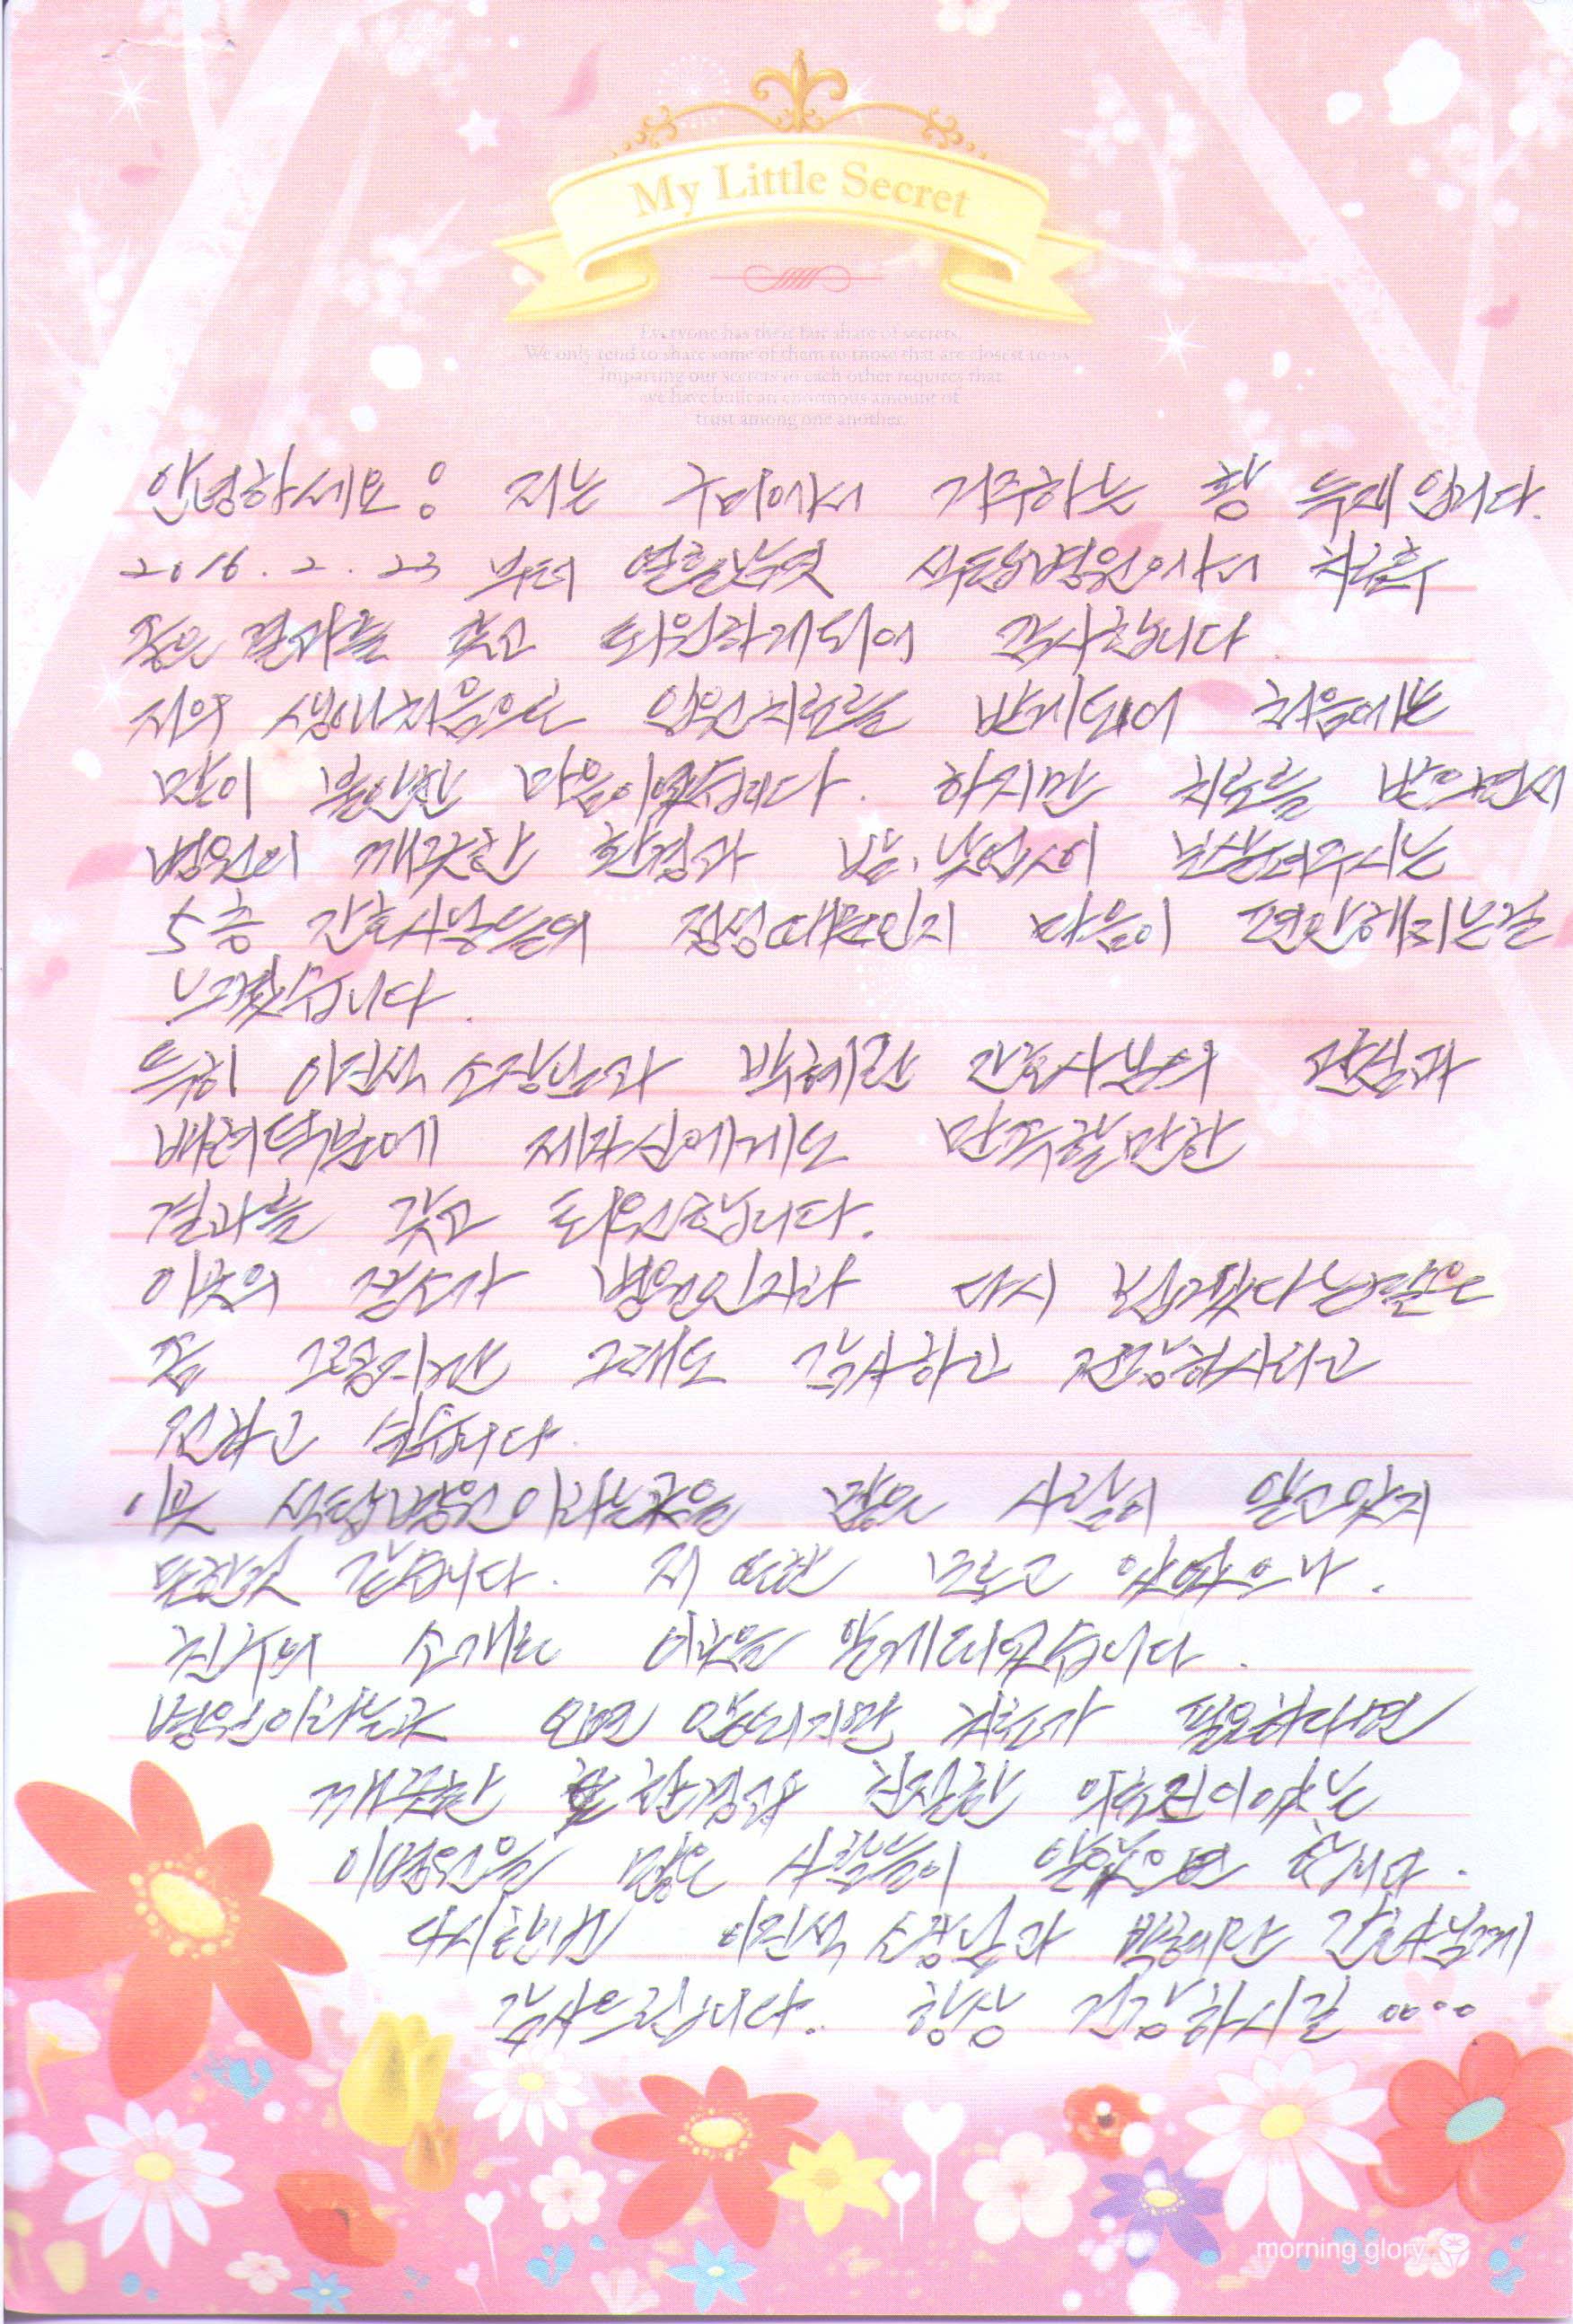 My Little Secret
Everyone has their fair share of secrets.
We only tend to share some of them to those that are closest to us
Imparting our secrets to each other requires that
we have built an enormous amount of
trust among one another.
안녕하세요! 저는 구미에서 거주하는 황 입니다.
2016. 2. 23 부터 열흘남짓 치료후
좋은 결과를 갖고 퇴원하게되어 감사합니다.
저의 생애처음으로 입원치료를 받게되어 처음에는
많이 불안한 마음이였습니다. 하지만 치료를 받으면서
병원의 깨끗한 환경과 밤, 낮없이 보살펴주시는
5층 간호사님들의 정성때문인지 마음이 편안해지는걸
느꼈습니다.
특히 이진석 소장님과 박혜란 간호사님의 관심과
배려덕분에 제자신에게도 만족할만한
결과를 갖고 퇴원합니다.
이곳의 장소가 병원인지라 다시 뵙겠다는말은
좀 그렇지만 그래도 감사하고 건강하시라고
전하고 싶습니다.
이곳 병원이라는곳을 많은 사람이 알고있지
못한것 같습니다. 저 또한 모르고 있었으나.
친구의 소개로 이곳을 알게되었습니다.
병원이라는곳 안되지만 치료가 필요하다면
깨끗한 환경과 친절한 의료진이있는
이병원을 많은 사람들이 알았으면 합니다.
다시한번 이진석 소장님과 박혜란 간호사님께
감사드립니다. 항상 건강하시길 ....
morning glory